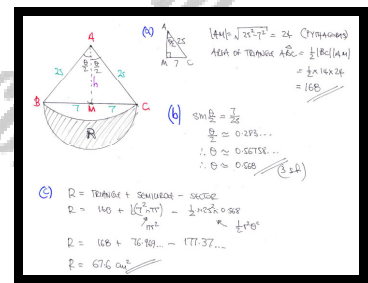 A
θ/2 θ/2
25 25
h
B M C
7 7
R
(a)
A
25
M 7 C
|AM| = √25²-7² = 24 (PYTHAGORAS)
AREA OF TRIANGLE ABC = ½|BC||AM|
= ½×14×24
= 168
(b) sin θ/2 = 7/25
θ/2 ≈ 0.283...
∴ θ ≈ 0.56758...
∴ θ ≈ 0.568 (3 sf)
(c) R = TRIANGLE + SEMICIRCLE - SECTOR
R = 168 + ½(7²×π) - ½×25²×0.568
πr² ½r²θᶜ
R = 168 + 76.969... - 177.37...
R = 67.6 cm²